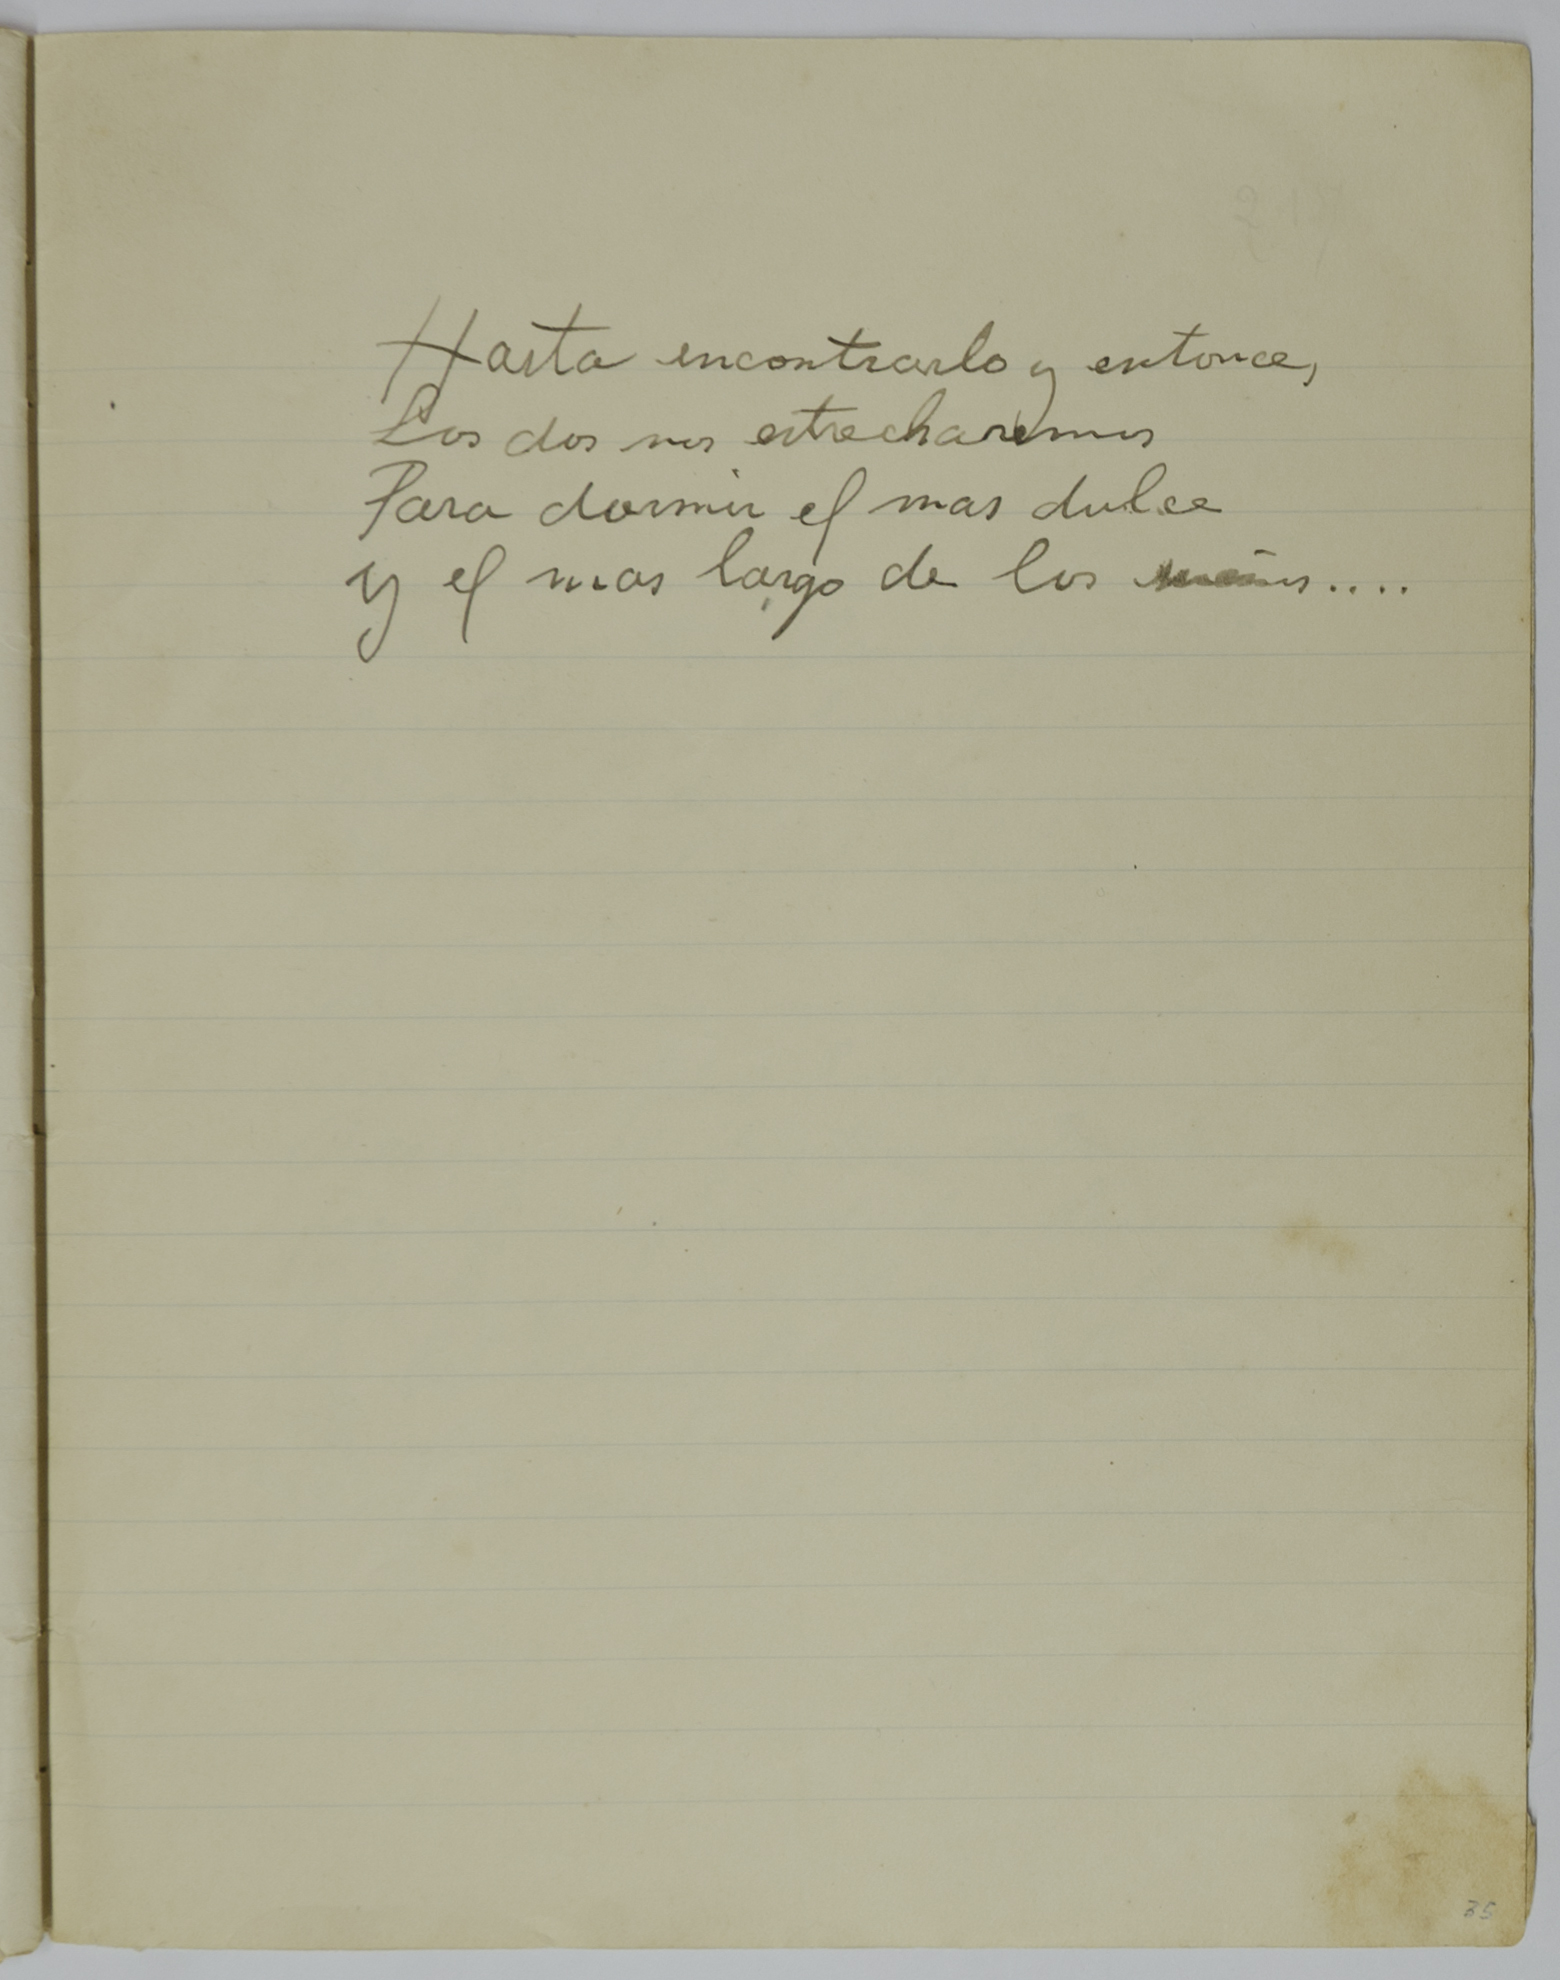 Hasta encontrarlo y entonces
Los dos nos estrecharemos
Para dormir el mas dulce
y el mas largo de los sueños....
35